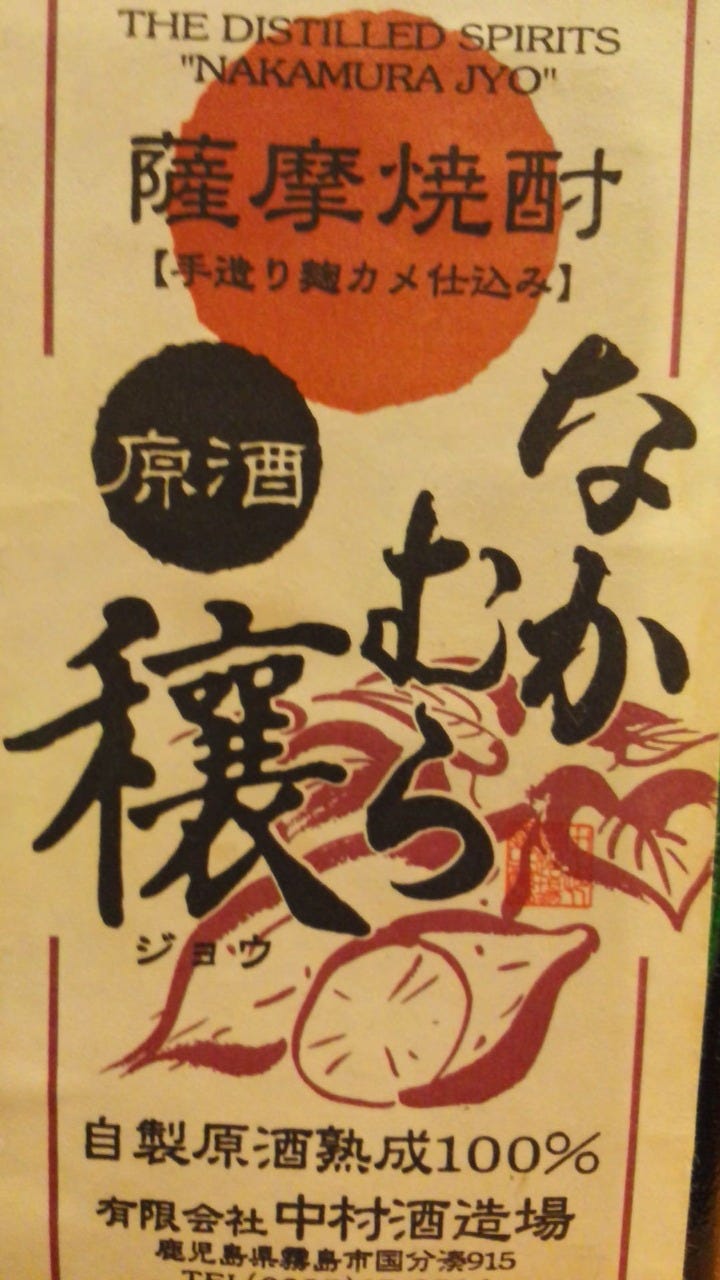 THE DISTILLED SPIRITS
"NAKAMURA JYO"
薩摩焼酎
【手造り麹カメ仕込み】
原酒
なかむら
穣
ジョウ
自製原酒熟成100%
有限会社 中村酒造場
鹿児島県霧島市国分湊915